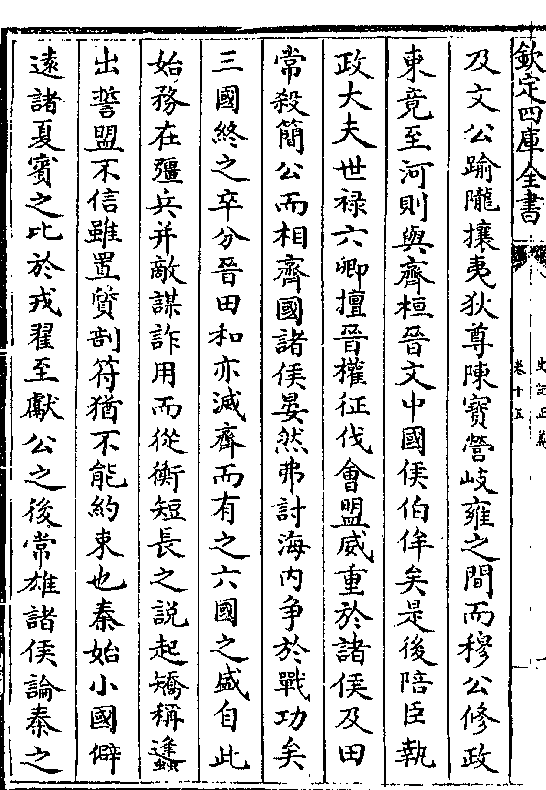 欽定四庫全書
史記正義
卷十五
及文公踰隴攘夷狄尊陳寶營岐雍之間而穆公修政
東竟至河則與齊桓晉文中國侯伯侔矣是後陪臣執
政大夫世祿六卿擅晉權征伐會盟威重於諸侯及田
常殺簡公而相齊國諸侯晏然弗討海內爭於戰功矣
三國終之卒分晉田和亦滅齊而有之六國之盛自此
始務在彊兵并敵謀詐用而從衡短長之說起矯稱蠭
出誓盟不信雖置質剖符猶不能約束也秦始小國僻
逺諸夏賓之比於戎翟至獻公之後常雄諸侯論秦之